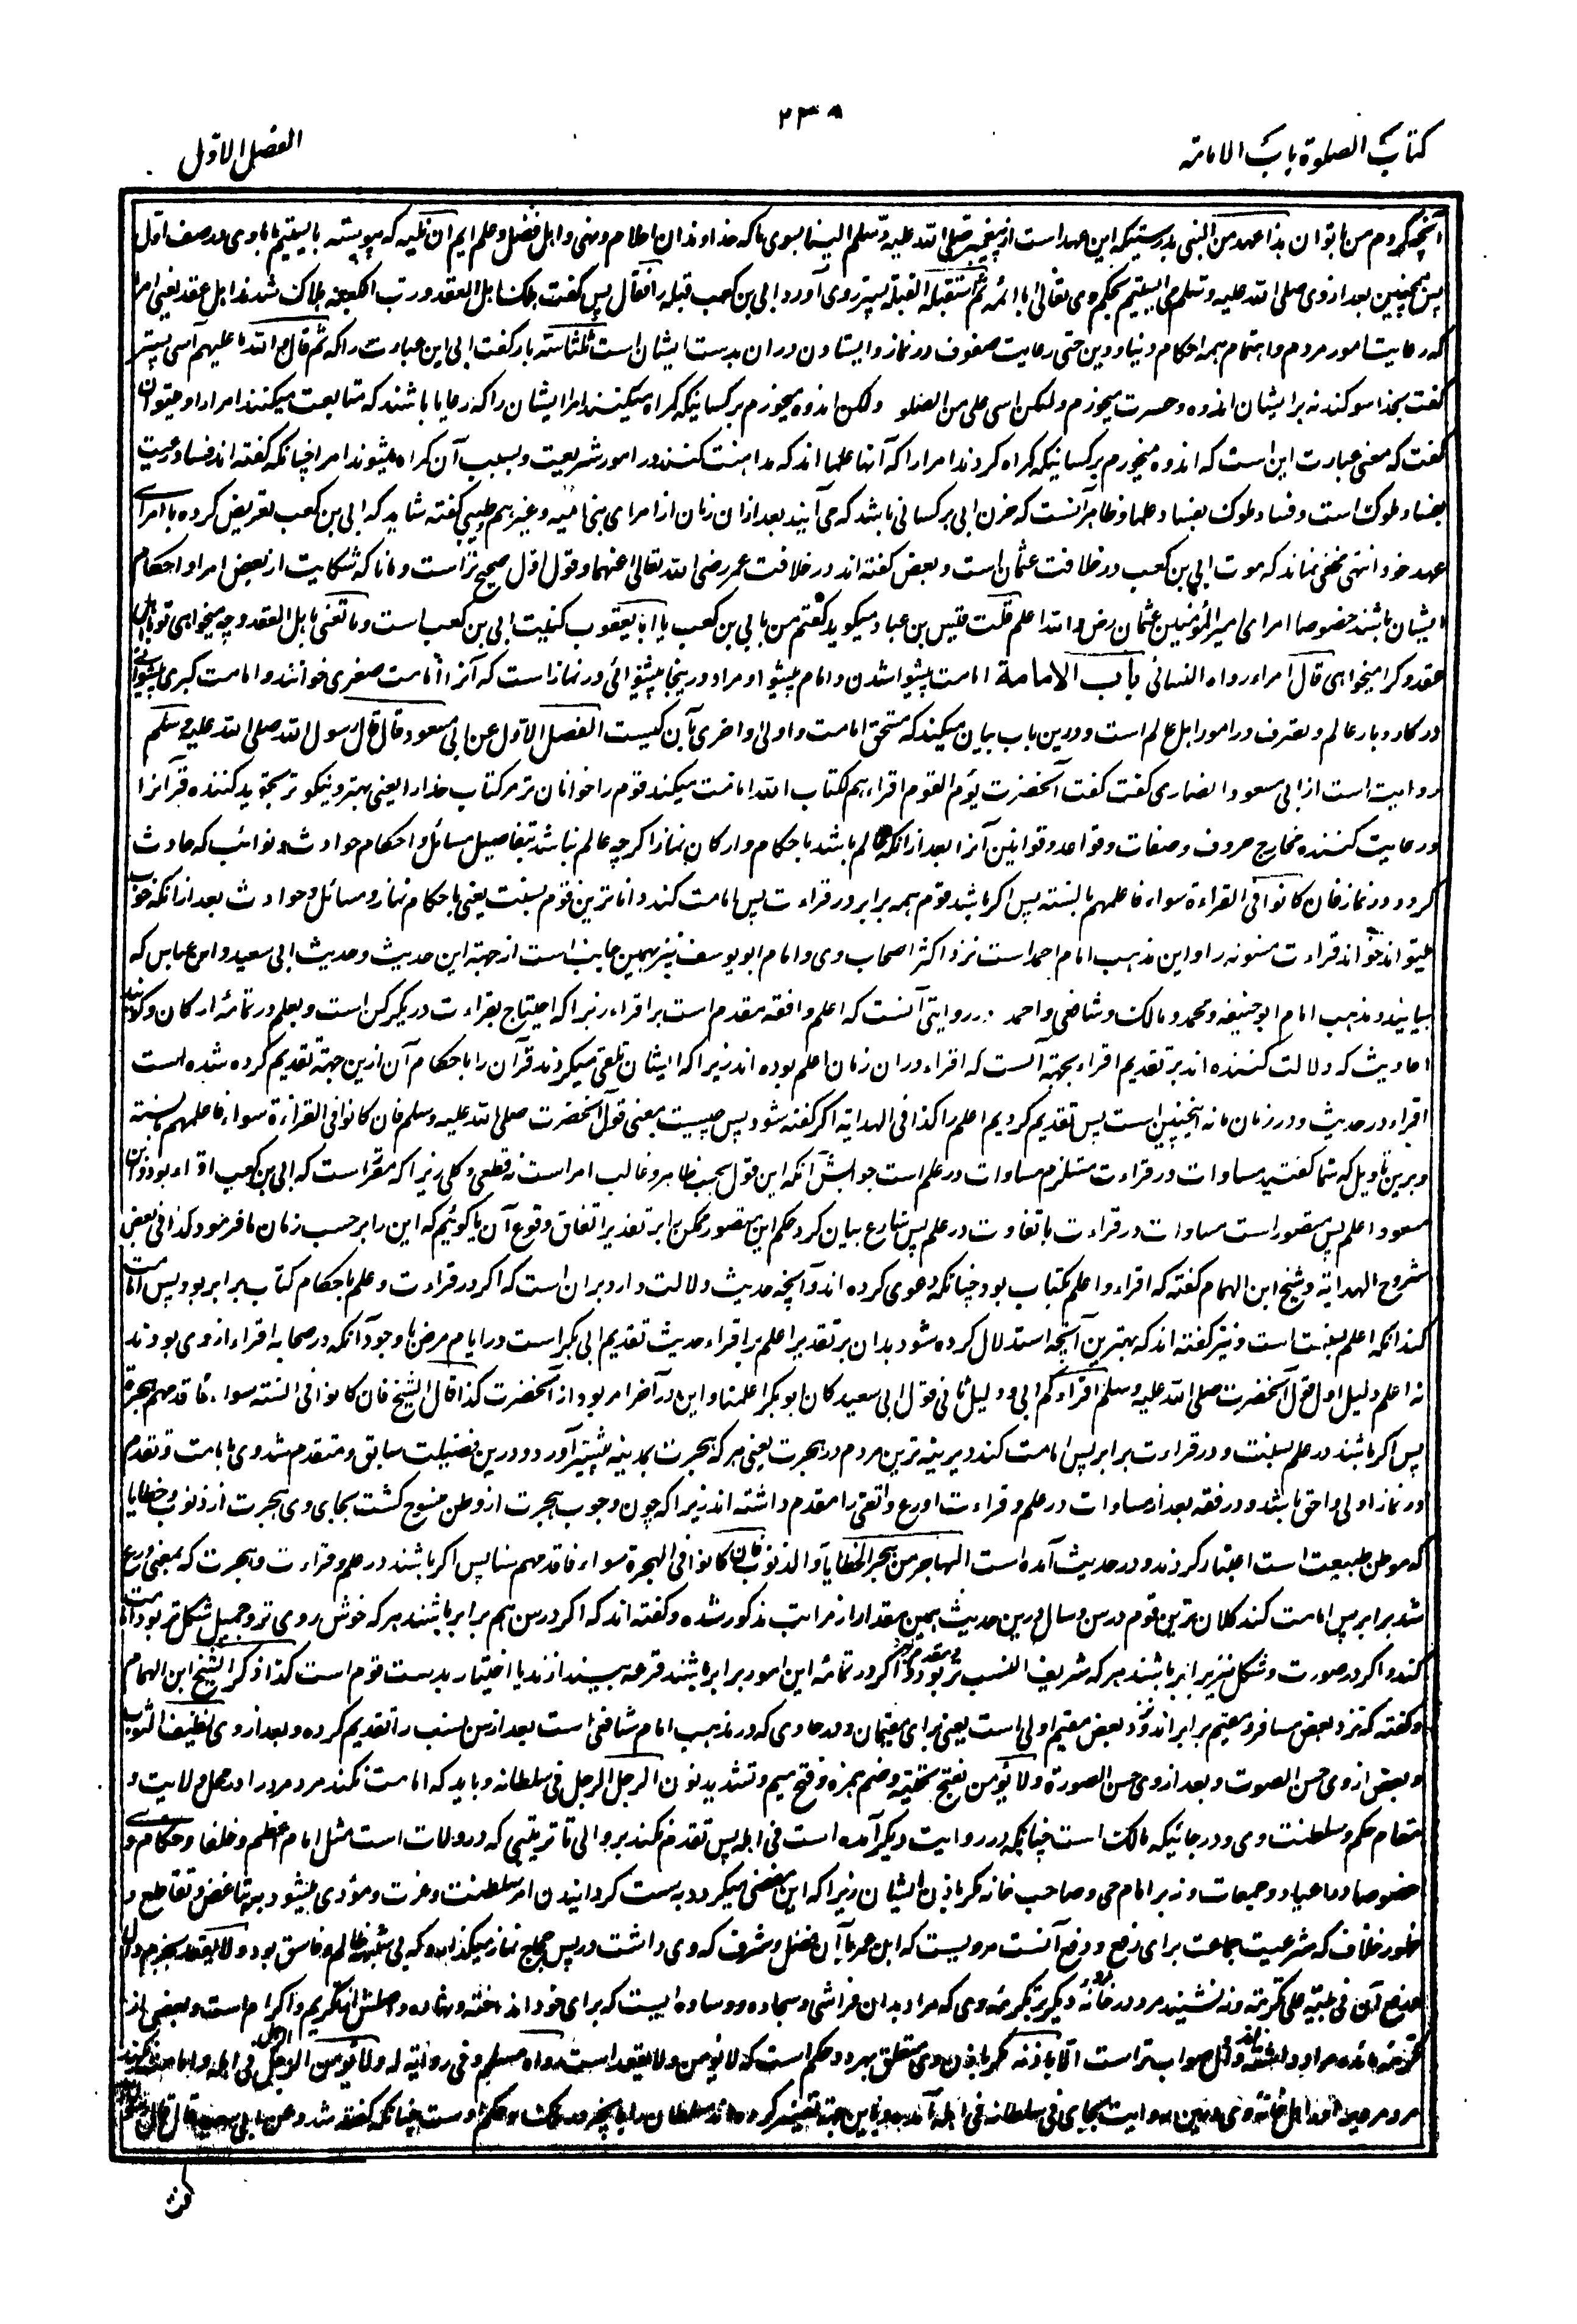 ۲۳۸
کتاب الصلوة باب الامامة
الفصل الاول
آنچه کردم من با تو ان هذا عهد من النبی بدرستیکه این عهد است از پیغمبر صلی الله علیه وسلم الینا بسوی ما که خداوندان احلام و نهی و اهل فضل و علم ایم ان نلیه که پیوسته بایستیم با وی در صف اول
پس همچنین بعد از وی صلی الله علیه وسلم می ایستیم بحکم وی تعالی با ائمه ثم استقبل القبلة پستر روی آورد ابی بن کعب قبله را فقال پس گفت هلک اهل العقد ورب الکعبه هلاک شدند اهل عقد یعنی امرا
که رعایت امور مردم و اهتمام همه احکام دنیا و دین حتی رعایت صفوف در نماز و ایستادن دران بدست ایشان است ثلثا سه بار گفت ابی این عبارت را که ثم قال والله ما علیهم آسی پستر
گفت بخدا سوگند نه بر ایشان اندوه و حسرت میخورم ولکن اسی علی من اضلوا ولکن اندوه میخورم بر کسانیکه گمراه میکنند امرا ایشان را که رعایا باشند که متابعت میکنند امرا را و میتوان
گفت که معنی عبارت این است که اندوه میخورم بر کسانیکه گمراه کردند امرا را که آنها علما اند که مداهنت کنند در امور شریعت و بسبب آن گمراه میشوند امرا چنانکه گفته اند فساد رعیت
بفساد ملوک است و فساد ملوک بفساد علما و ظاهر آنست که حزن ابی بر کسانی باشد که می آیند بعد ازان زمان از امرای بنی امیه و غیرهم طیبی گفته شاید که ابی بن کعب تعریض کرده با امرای
عهد خود انتهی مخفی نماند که موت ابی بن کعب در خلافت عثمان است و بعض گفته اند در خلافت عمر رضی الله تعالی عنهما و قول اول صحیح تر است و مانا که شکایت از بعض امرا و احکام
ایشان باشند خصوصا امرای امیر المؤمنین عثمان رض والله اعلم قلت قیس بن عباد میگوید گفتم من بابی بن کعب یا ابا یعقوب کنیت ابی بن کعب است و ما تعنی باهل العقد و چه میخواهی تو باهل
عقد و کرا میخواهی قال امراء رواه النسائی باب الامامة امامت پیشوا شدن و امام پیشوا و مراد درینجا پیشوائی در نماز است که آنرا امامت صغری خوانند و امامت کبری پیشوائی
در کار و بار عالم و تصرف در امور اهل عالم است و درین باب بیان میکند که مستحق امامت و اولی و احری بآن کیست الفصل الاول عن ابی مسعود قال قال رسول الله صلی الله علیه وسلم
روایت است از ابی مسعود انصاری گفت گفت آنحضرت یؤم القوم اقراءهم لکتاب الله امامت میکند قوم را خوانان تر مر کتاب خدا را یعنی بهتر و نیکوتر تجوید کننده قرآن را
و رعایت کننده مخارج حروف و صفات و قواعد و قوانین آنرا بعد ازانکه عالم باشد باحکام و ارکان نماز اگرچه عالم نباشد بتفاصیل مسائل و احکام حوادث و نوائب که حادث
گردد در نماز فان کانوا فی القراءة سواء فاعلمهم بالسنة پس اگر باشد قوم همه برابر در قراءت پس امامت کند داناترین قوم بسنت یعنی باحکام نماز و مسائل و حوادث بعد ازانکه خوب
میتواند خواند قراءت مسنونه را و این مذهب امام احمد است نزد اکثر اصحاب وی و امام ابو یوسف نیز بهمین جانب است از جهة این حدیث و حدیث ابی سعید و ابن عباس که
بیایند و مذهب امام ابو حنیفه و محمد و مالک و شافعی و احمد در روایتی آنست که اعلم و افقه مقدم است بر اقراء زیرا که احتیاج بقراءت در یک رکن است و بعلم در تمامه ارکان و گویند
احادیث که دلالت کننده اند بر تقدیم اقراء بجهة آنست که اقراء دران زمان اعلم بوده اند زیرا که ایشان تلقی میکردند قرآن را باحکام آن ازین جهة تقدیم کرده شده است
اقراء در حدیث و در زمان ما نه همچنین است پس تقدیم کردیم اعلم را کذا فی الهدایه اگر گفته شود پس چیست معنی قول آنحضرت صلی الله علیه وسلم فان کانوا فی القراءة سواء فاعلمهم بالسنة
و برین تاویل که شما گفتید مساوات در قراءت مستلزم مساوات در علم است جوابش آنکه این قول بحسب ظاهر و غالب امر است نه قطعی و کلی زیرا که مقرر است که ابی بن کعب اقراء بود و ابن
مسعود اعلم پس متصور است مساوات در قراءت با تفاوت در علم پس شارع بیان کرد حکم این متصور ممکن را بر تقدیر اتفاق وقوع آن یا گوئیم که این را بر حسب زمان ما فرمود کذا فی بعض
شروح الهدایه و شیخ ابن الهمام گفته که اقراء و اعلم بکتاب بود چنانکه دعوی کرده اند و آنچه حدیث دلالت دارد بران است که اگر در قراءت و علم باحکام کتاب برابر بود پس امامت
کند آنکه اعلم بسنت است و نیز گفته اند که بهترین آنچه استدلال کرده شود بدان بر تقدیم اعلم بر اقراء حدیث تقدیم ابی بکر است در ایام مرض با وجود آنکه در صحابه اقراء از وی بودند
نه اعلم دلیل اول قول آنحضرت صلی الله علیه وسلم اقراءکم ابی و دلیل ثانی قول ابی سعید کان ابو بکر اعلمنا و این در آخر امر بود از آنحضرت کذا قال الشیخ فان کانوا فی السنة سواء فاقدمهم هجرة
پس اگر باشند در علم بسنت و در قراءت برابر پس امامت کند دیرینه ترین مردم در هجرت یعنی هر که هجرت بمدینه پیشتر آورد و درین فضیلت سابق و متقدم شد وی بامامت و تقدم
در نماز اولی و احق باشد و در فقه بعد از مساوات در علم و قراءت اورع و اتقی را مقدم داشته اند زیرا که چون وجوب هجرت از وطن منسوخ گشت بجای وی هجرت از ذنوب و خطایا
که موطن طبیعت است اعتبار کردند و در حدیث آمده است المهاجر من هجر الخطایا و الذنوب فان کانوا فی الهجرة سواء فاقدمهم سنا پس اگر باشند در علم و قراءت و هجرت که بمعنی ورع
شد برابر پس امامت کند کلان ترین قوم در سن و سال و درین حدیث همین مقدار از مراتب مذکور شده و گفته اند که اگر در سن هم برابر باشند هر که خوش روی تر و جمیل شکل تر بود امامت
کند و اگر در صورت و شکل نیز برابر باشند هر که شریف النسب تر بود مقدم گردد و اگر در تمامه این امور برابر باشند قرعه بیندازند یا اختیار بدست قوم است کذا ذکر الشیخ ابن الهمام
و گفته که نزد بعض مسافر و مقیم برابر اند و نزد بعض مقیم اولی است یعنی برای مقیمان و در حاوی که در مذهب امام شافعی است بعد از سن نسب را تقدیم کرده و بعد از وی نظیف الثوب
و بعض از وی حسن الصوت و بعد از وی حسن الصورة ولا یؤمن بفتح تحتیه و ضم همزه و فتح میم و تشدید نون الرجل الرجل فی سلطانه و باید که امامت نکند مرد مرد را در محل ولایت و
مقام حکم و سلطنت وی و در جائیکه مالک است چنانکه در روایت دیگر آمده است فی اهله پس تقدم نکند بر والی تا ترتیبی که در ولات است مثل امام اعظم و خلفا و حکام و
خصوصا در اعیاد و جمعات و نه بر امام حی و صاحب خانه مگر باذن ایشان زیرا که این مفضی میگردد به سست گردانیدن امر سلطنت و عزت و مؤدی میشود به تباغض و تقاطع و
ظهور خلاف که شرعیت جماعت برای رفع و دفع آنست مرویست که ابن عمر با آن فضل و شرف که وی داشت در پس حجاج نماز میگذارد که بی شبهه ظالم و فاسق بود ولا یقعد بجزم دال
فی بیته علی تکرمته و نه نشیند مرد در خانه مرد دیگر بر تکرمه وی که مراد بدان فراشی و سجاده و وساده ایست که برای خود انداخته و نهاده و اصلش از تکریم و اکرام است و بعضی از
الا باذنه مگر باذن وی متعلق بهر دو حکم است که لا یؤمن و لا یقعد است رواه مسلم و فی روایة له ولا یؤمن الرجل الرجل فی اهله